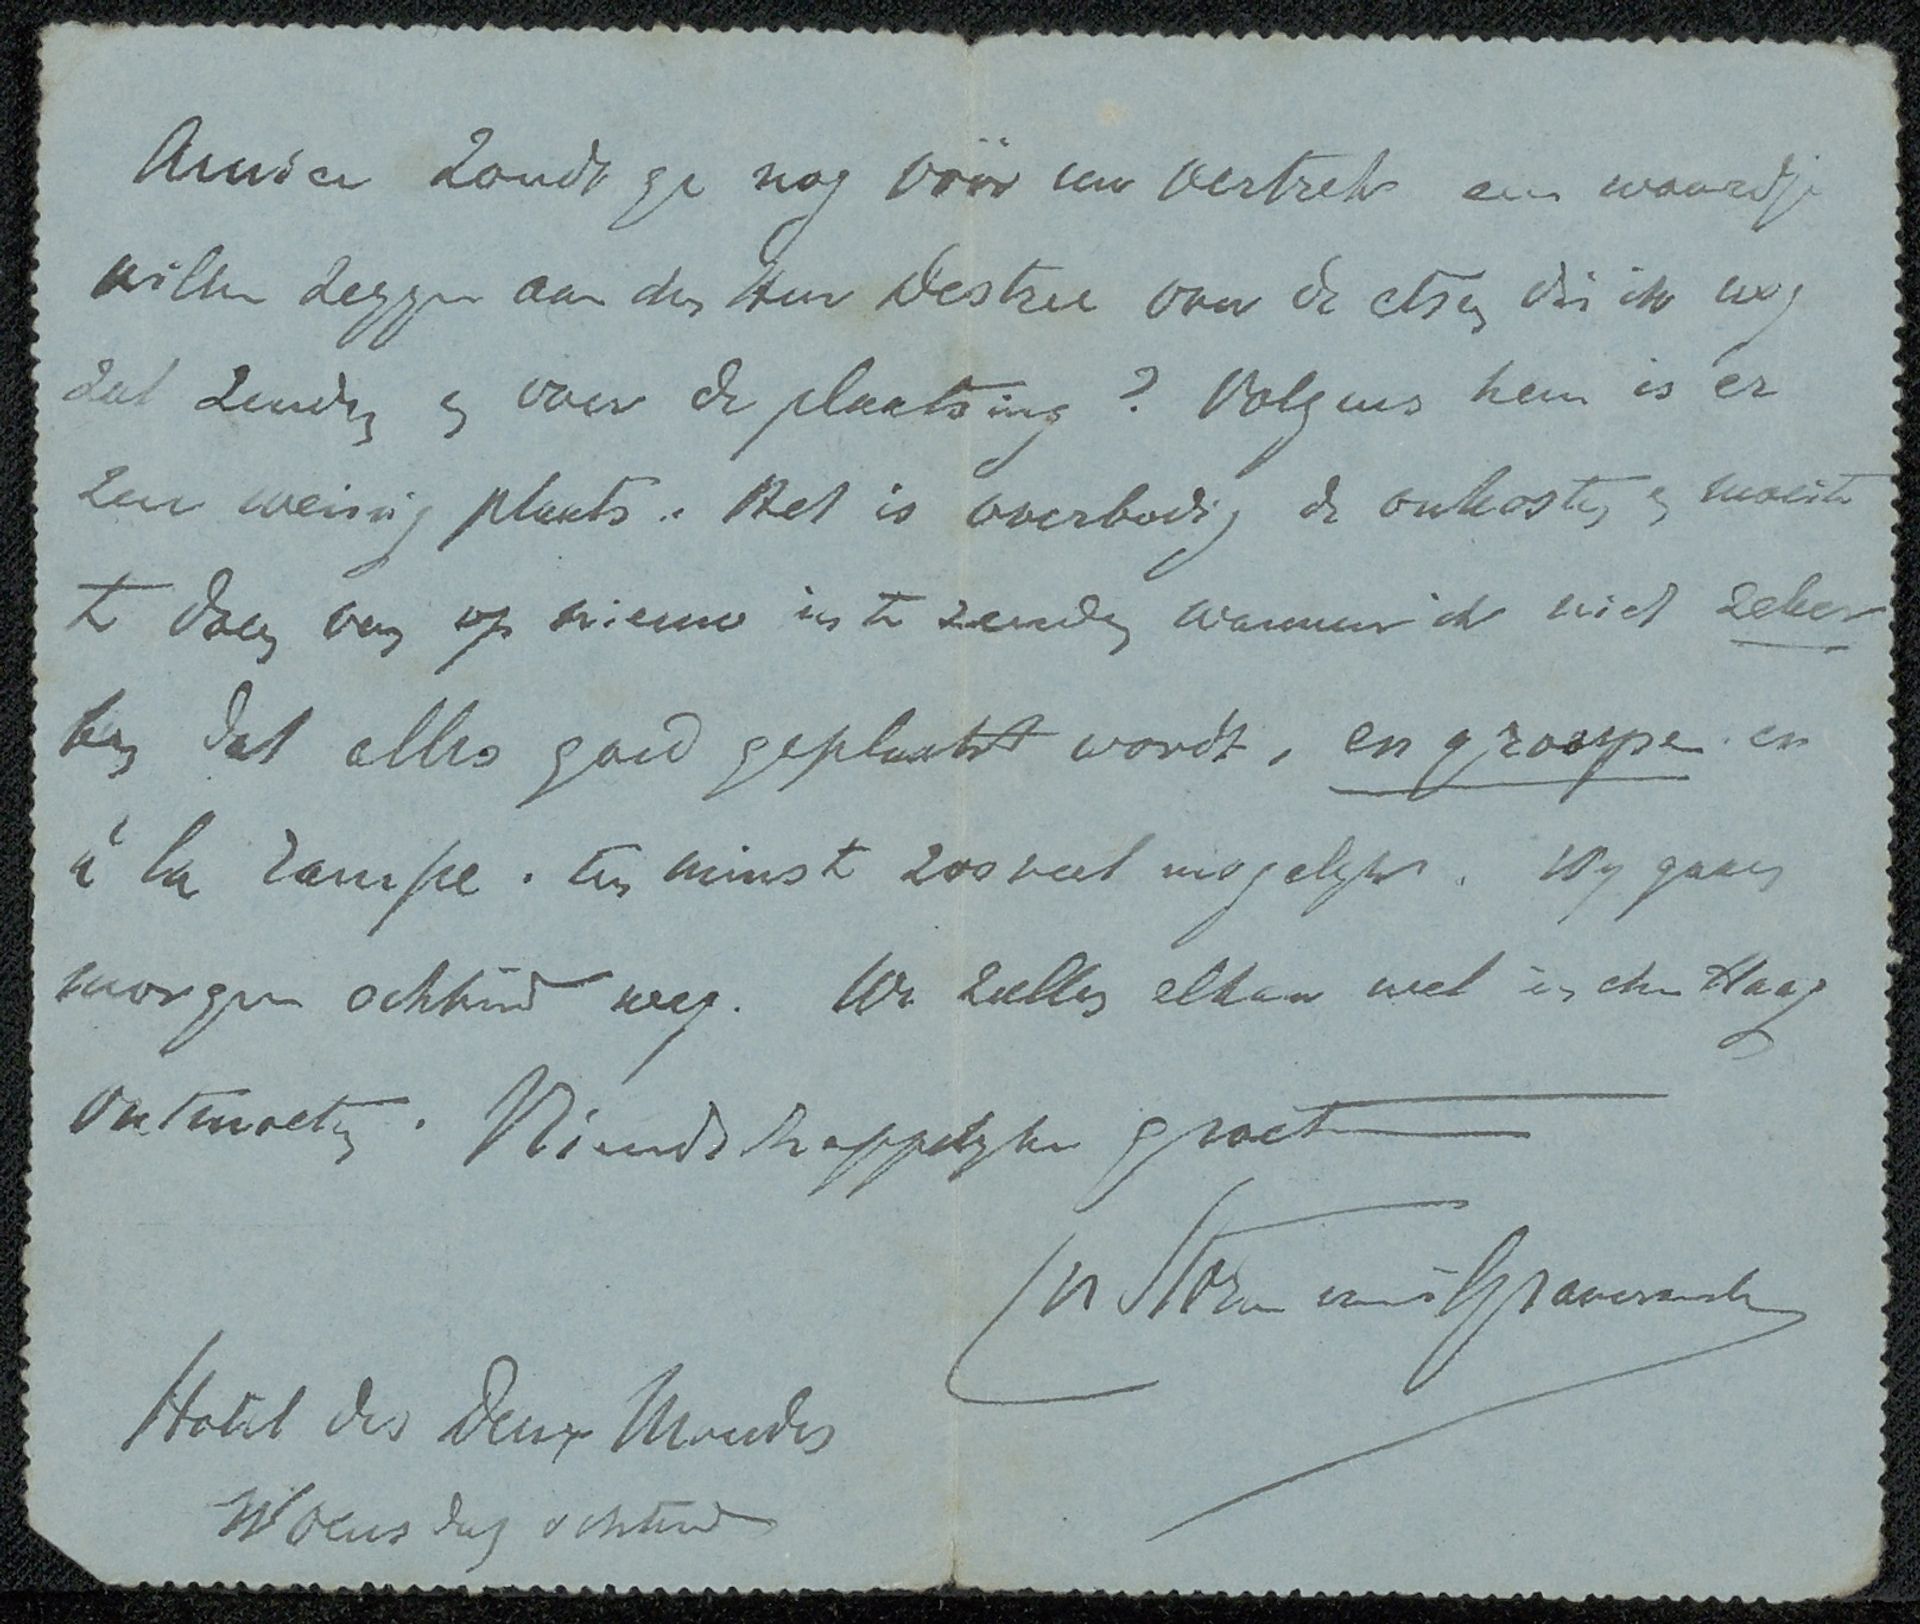 Amice Zoudt ge nog vóór uw vertrek een woordje
willen zeggen aan den Heer Destree over de etsen die ik nog
zal zenden en over de plaatsing? Volgens hem is er
zeer weinig plaats. Het is overbodig de onkosten en moeite
te doen van op nieuw in te zenden wanneer ik niet zeker
ben dat alles goed geplaatst wordt, en groupe en
à la rampe. ten minste zooveel mogelyk. Wy gaan
morgen ochtend weg. We zullen elkaar wel in den Haag
ontmoeten. Vriendschappelyken groet
C N Storm van 's Gravesande
Hotel des Deux Mondes
Woensdag ochtend